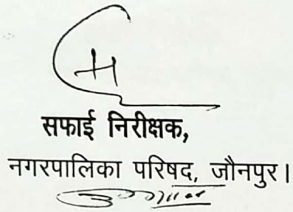 सफाई निरीक्षक,
नगरपालिका परिषद, जौनपुर।